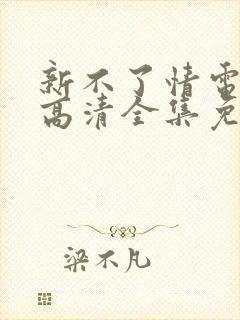 新不了情雷
高清全集免
梁不凡